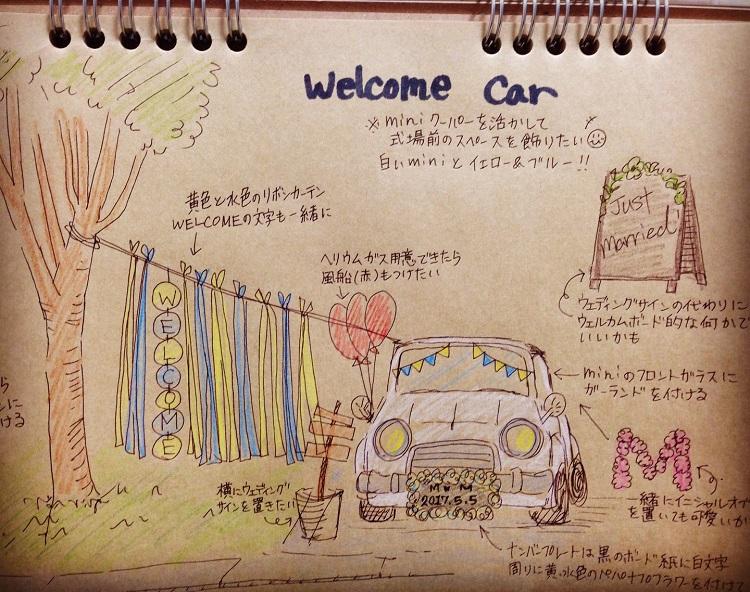 Welcome Car
※miniクーパーを活かして
式場前のスペースを飾りたい
白いminiとイエロー&ブルー!!
黄色と水色のリボンカーテン
WELCOMEの文字も一緒に
ヘリウムガス用意できたら
風船(赤)もつけたい
Just
married
ウェディングサインの代わりに
ウェルカムボード的な何かで
いいかも
WELCOME
miniのフロントガラスに
ガーランドを付ける
M
一緒にイニシャルオブ
を置いても可愛いか
横にウェディング
サインを置きたい
M♥M
2017.5.5
ナンバープレートは黒のボード紙に白文字
周りに黄、水色のペーパーフラワーを付ける
ら
に
ける